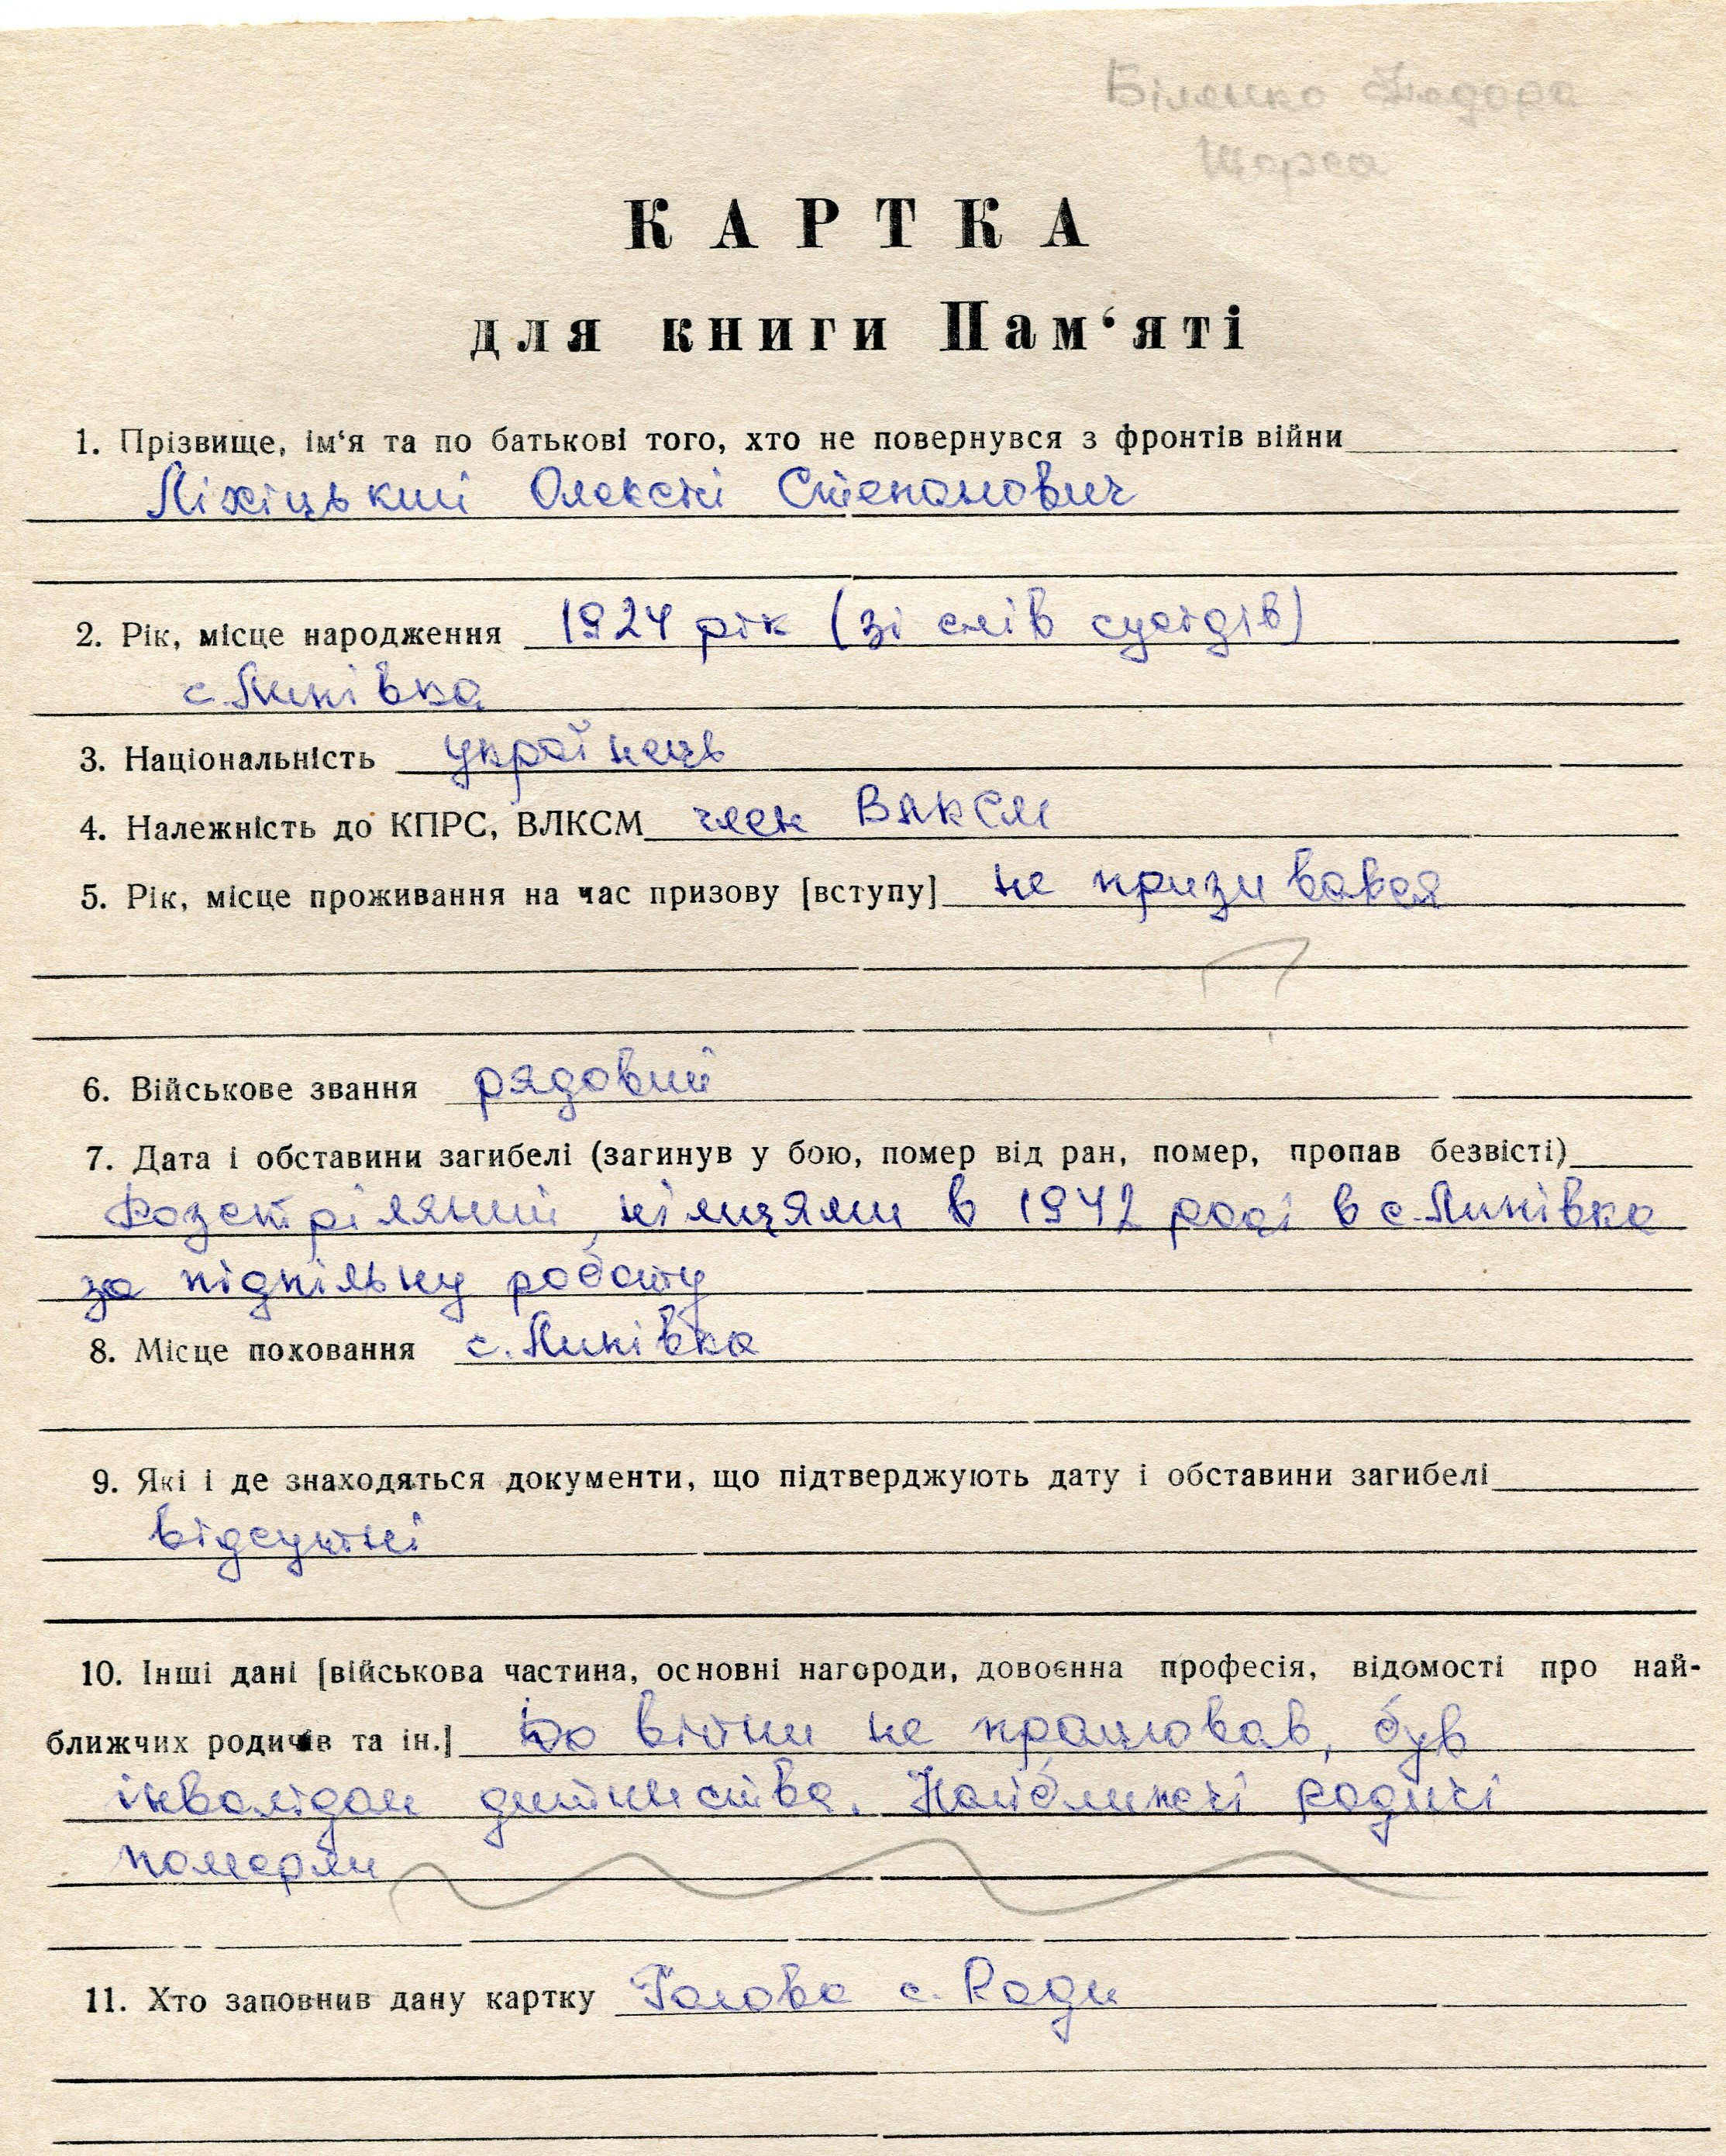 Біленко Федора
Щорса
КАРТКА
для книги Пам‘яті
1. Прізвище, ім‘я та по батькові того, хто не повернувся з фронтів війни
Ліхіцький Олексій Степанович
2. Рік, місце народження 1924 рік (зі слів сусідів)
с. Липівка
3. Національність українець
4. Належність до КПРС, ВЛКСМ член ВЛКСМ
5. Рік, місце проживання на час призову [вступу] не призивався
6. Військове звання рядовий
7. Дата і обставини загибелі (загинув у бою, помер від ран, помер, пропав безвісті)
Розстріляний німцями в 1942 році в с. Липівка
за підпільну роботу
8. Місце поховання с. Липівка
9. Які і де знаходяться документи, що підтверджують дату і обставини загибелі
відсутні
10. Інші дані [військова частина, основні нагороди, довоєнна професія, відомості про най-
ближчих родичів та ін.] До війни не працював, був
інвалідом дитинства. Найближчі родичі
померли
11. Хто заповнив дану картку Голова с. Ради